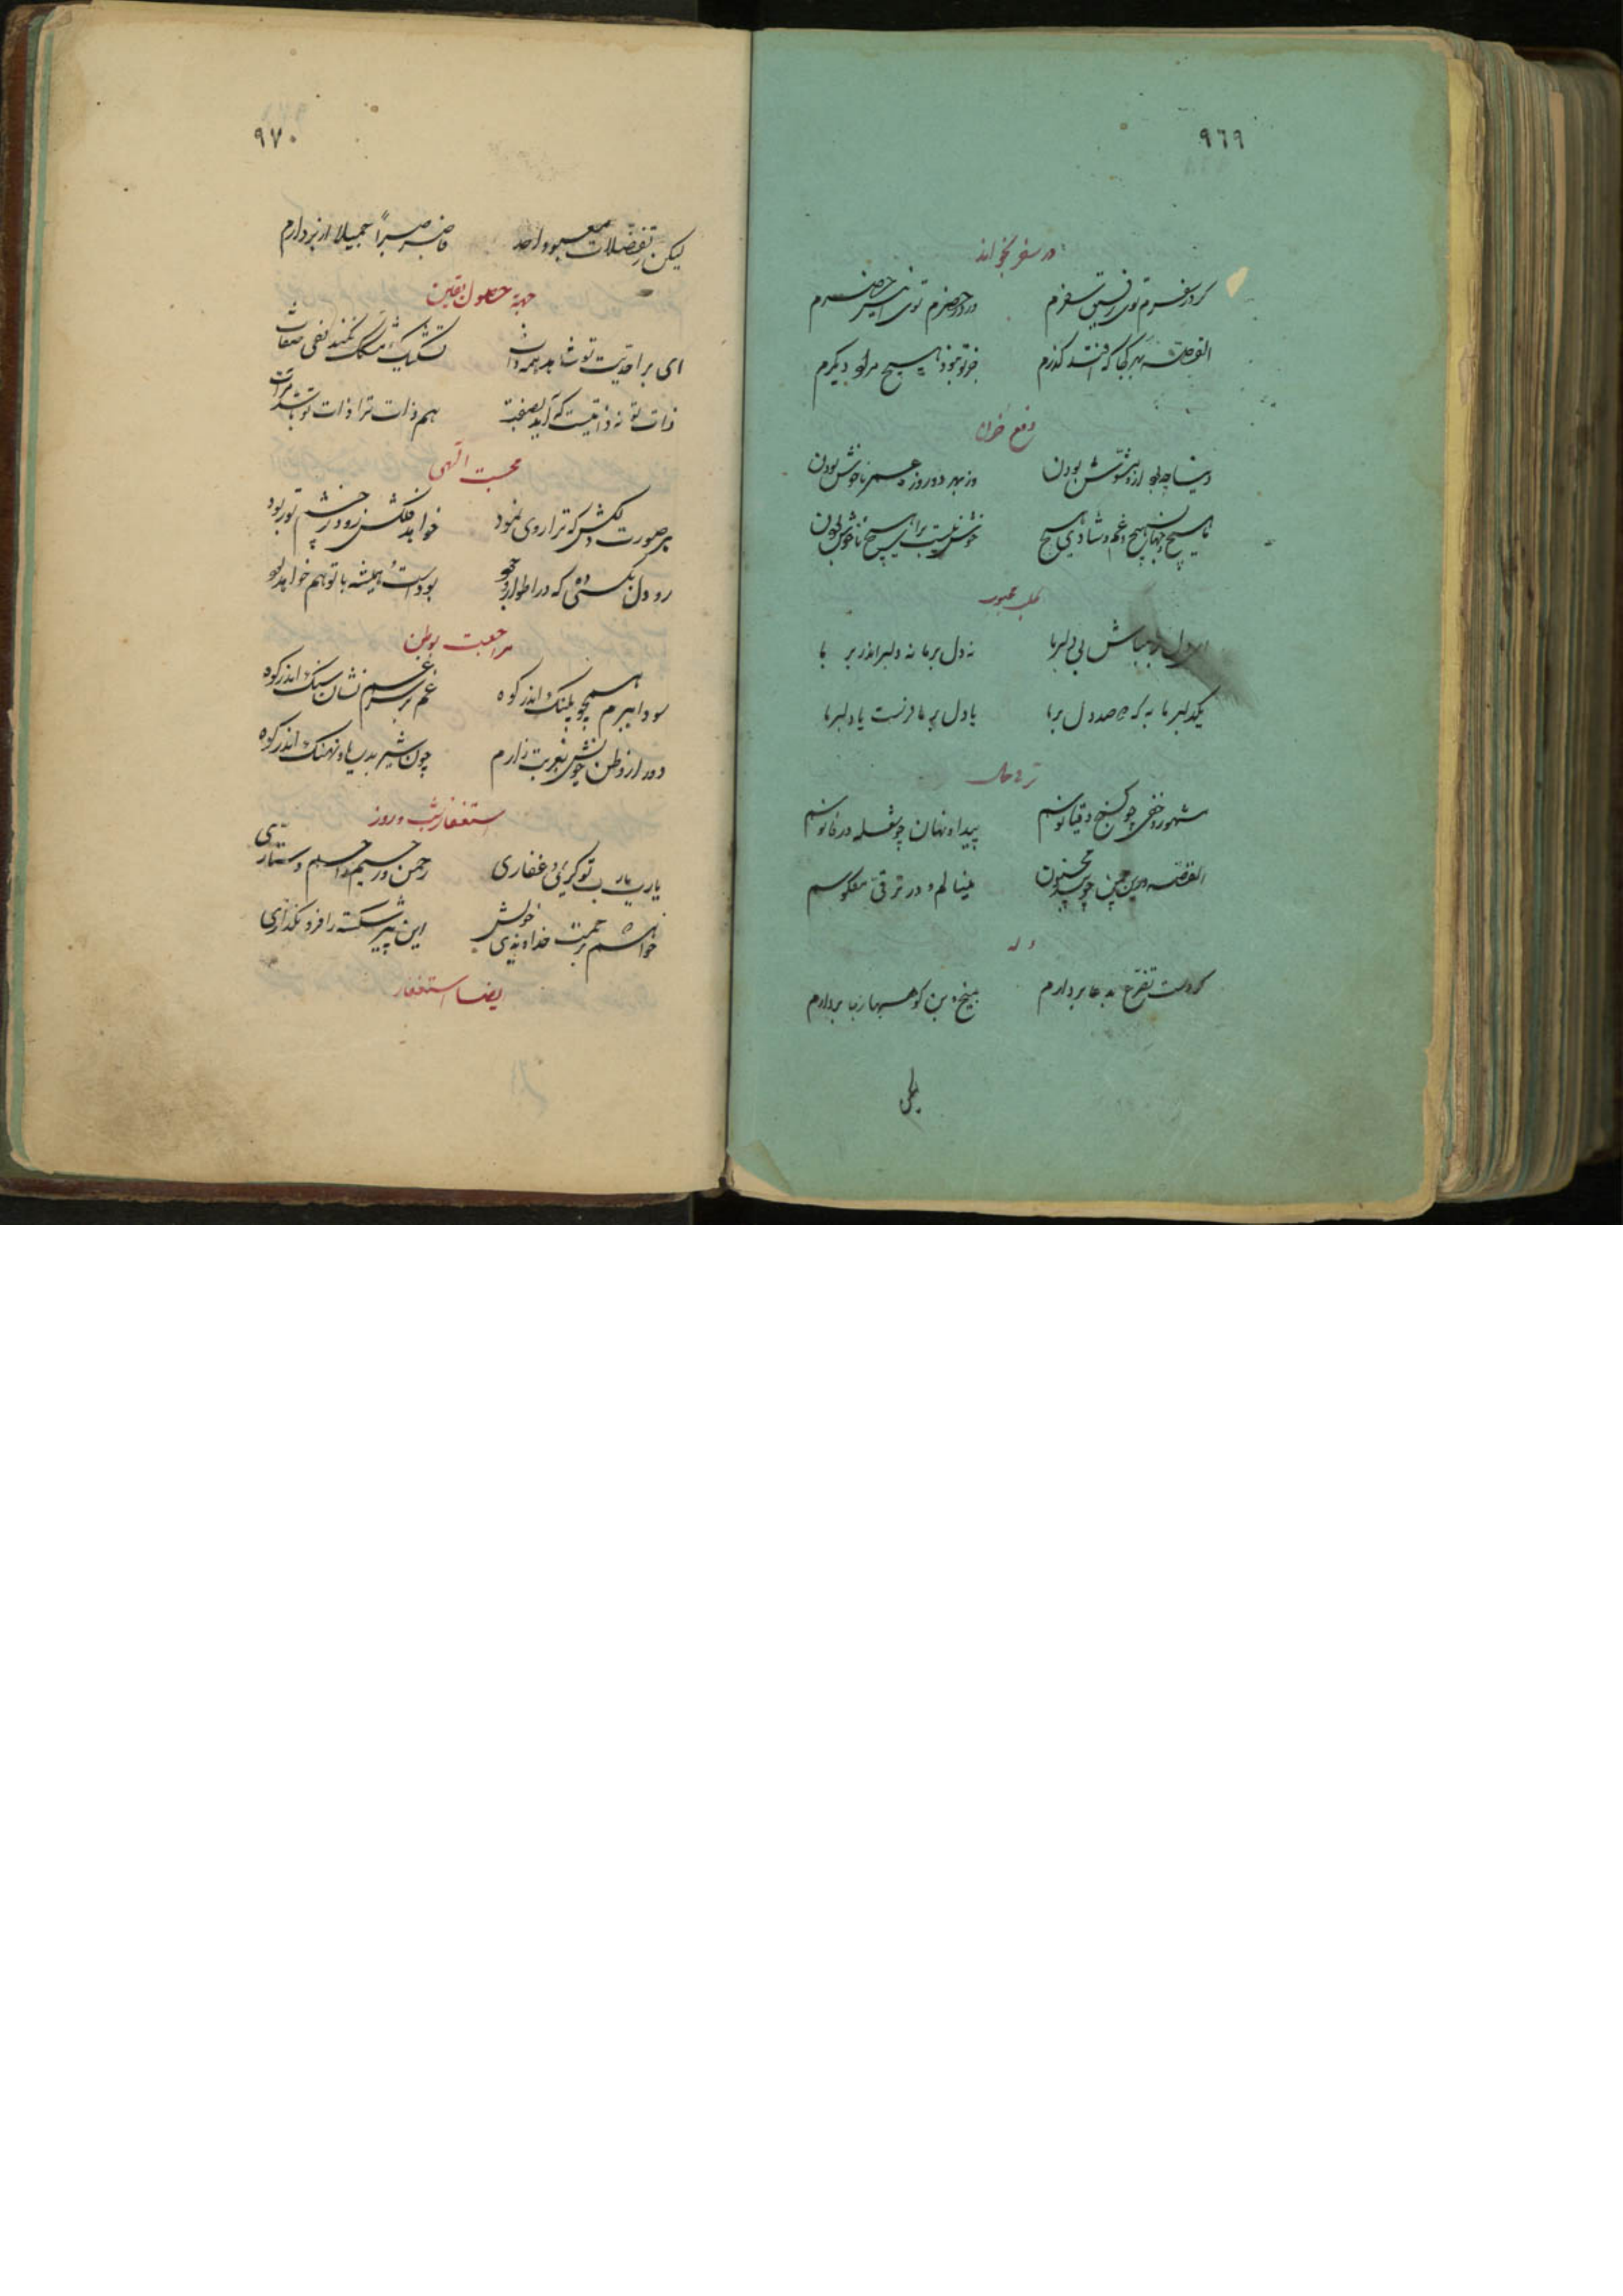 ٩٦٩
در سفر بخواند
گر در سفرم توئی رفیق سفرم
ور در حضرم توئی انیس حضرم
القصه بهر کجا که افتد گذرم
جز تو نبود هیچ مراد دگرم
دفع حزن
دنیا چه بود ازو مشوش بودن
وز بهر دو روزه عمر ناخوش بودن
ما هیچ و جهان هیچ و غم و شادی هیچ
خوش نیست برای هیچ ناخوش بودن
طلب محبوب
بی دلبر ما
نه دل بر ما نه دلبر اندر بر ما
یکدلبر ما به که دو صد دل بر ما
یا دل بر ما فرست یا دلبر ما
مشهور و خفی چو گنج دقیانوسم
پیدا و نهان چو شعله در فانوسم
القصه درین چمن چو بید مجنون
میبالم و در ترقی معکوسم
وله
گر دست تضرع به دعا بردارم
بیخ و بن کوهسها ز جا بردارم
لیکن
٩٧٠
لیکن ز تفضلات معبود احد
فاصبر صبرا جمیلا از بر دارم
جهة حصول یقین
ای بر احدیت تو شاهد همه ذات
تشکیک مشکک نکند نفی صفات
ذات تو نه ذاتیست که آید بصفت
هم ذات ترا ذات تو باشد مرآت
محبت الهی
هر صورت دلکش که ترا روی نمود
خواهد فلکش زود ز چشم تو ربود
رو دل بکسی ده که در اطوار وجود
بودست همیشه با تو هم خواهد بود
مراجعت بوطن
سودا بسرم همچو پلنک اندر کوه
غم بر سر غم نشان سنک اندر کوه
دور از وطن خویش بغربت زارم
چون شیر بدریا و نهنک اندر کوه
استغفار شب و روز
یارب یارب تو کریمی و غفاری
رحمن و رحیم و راحم و ستاری
خواهم ز رحمت خداوندی خویش
این پیر شکسته را فرو نگذاری
ایضا استغفار